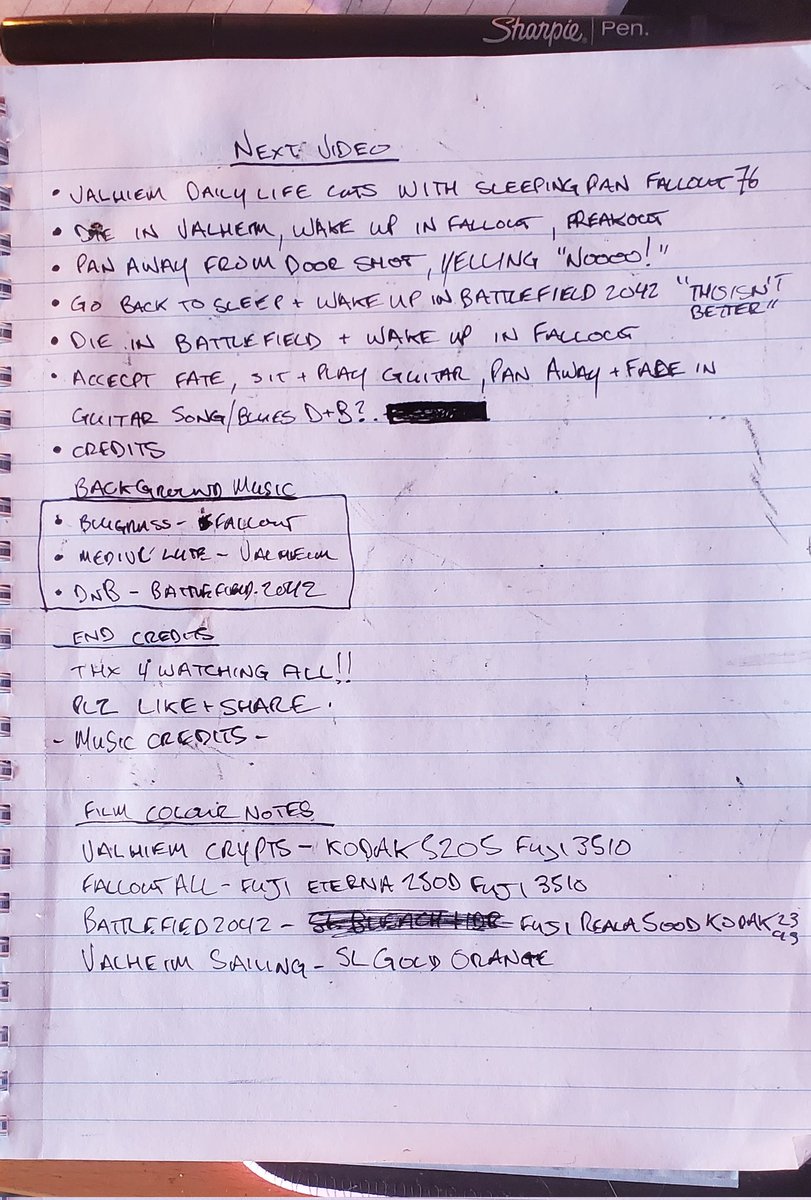 Sharpie. | Pen.
NEXT VIDEO
• VALHIEM DAILY LIFE CUTS WITH SLEEPING PAN FALLOUT 76
• DIE IN VALHEIM, WAKE UP IN FALLOUT, FREAKOUT
• PAN AWAY FROM DOOR SHOT, YELLING "NOOOO!"
• GO BACK TO SLEEP + WAKE UP IN BATTLEFIELD 2042 "THIS ISN'T
BETTER"
• DIE IN BATTLEFIELD + WAKE UP IN FALLOUT
• ACCECPT FATE, SIT + PLAY GUITAR, PAN AWAY + FADE IN
GUITAR SONG/BLUES D+B?.
• CREDITS
BACKGROUND MUSIC
• BLUGRASS - FALLOUT
• MEDIVL LUTE - VALHEIM
• DNB - BATTLEFIELD 2042
END CREDITS
THX 4 WATCHING ALL!!
PLZ LIKE + SHARE.
- MUSIC CREDITS -
FILM COLOUR NOTES
VALHIEM CRYPTS - KODAK 5205 FUJI 3510
FALLOUT ALL - FUJI ETERNA 250D FUJI 3510
BATTLEFIED 2042 - SL BLEACH HDR FUJI REALA 500D KODAK 23
93
VALHEIM SAILING - SL GOLD ORANGE